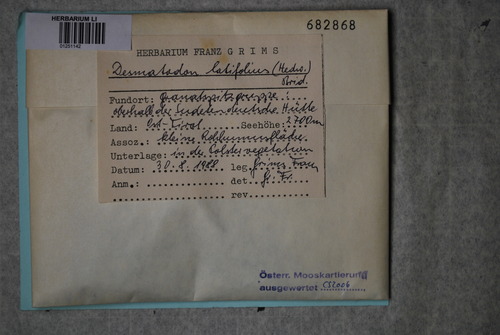 HERBARIUM LI
682868
HERBARIUM FRANZ GRIMS
Desmatodon latifolius (Hedw.)
Brid.
Fundort: Granatspitzgruppe:
oberhalb der Sudetendeutsche Hütte
Land: Ost-Tirol Seehöhe: 2700m
Assoz.: kleine
Unterlage: in der Polstervegetation
Datum: 30.8.1980 leg. Grims Franz
Anm.: det. Gr. Fr.
rev.
Österr. Mooskartierung
ausgewertet